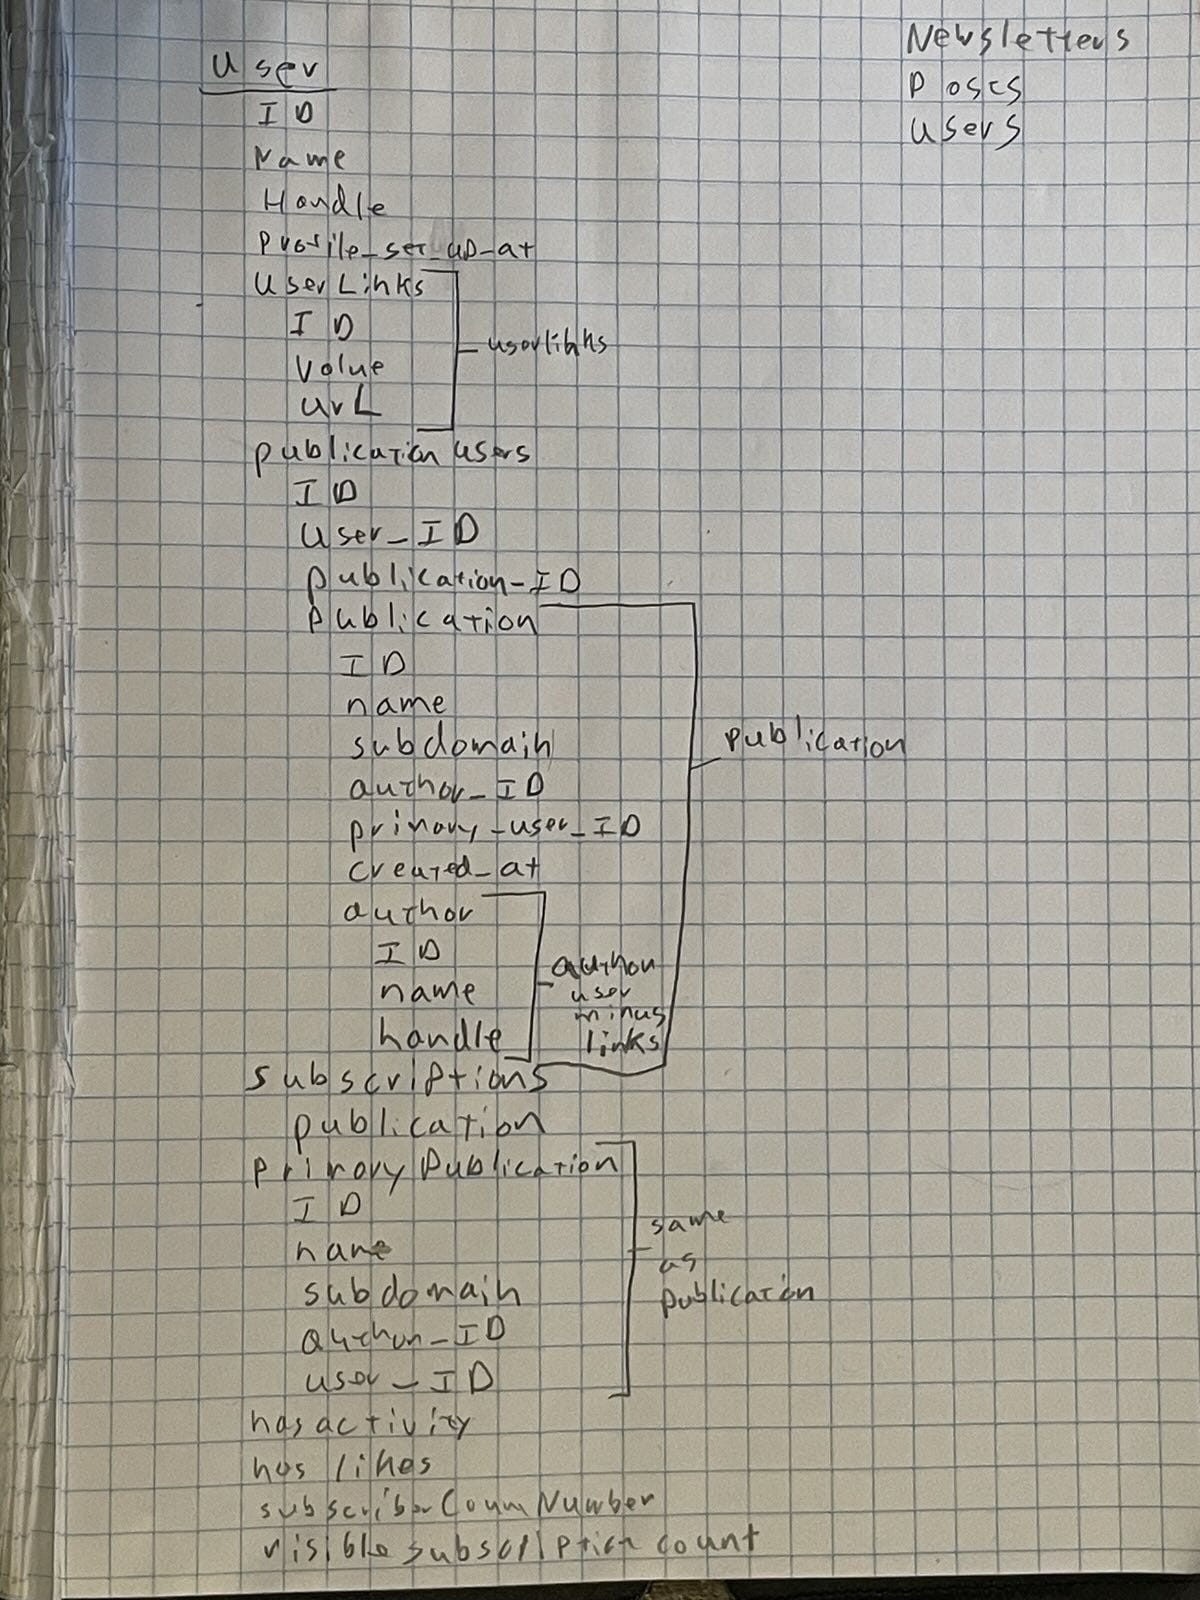 User
ID
Name
Handle
profile_set_up_at
userLinks
ID
value
urL
publication users
ID
user_ID
publication_ID
publication
ID
name
subdomain
author_ID
primary_user_ID
created_at
author
ID
name
handle
subscriptions
publication
primaryPublication
ID
name
subdomain
author_ID
user_ID
has activity
has likes
subscriber Number
visible subscription count
userlinks
publication
author
user
minus
links
same
as
publication
Newsletters
Posts
users